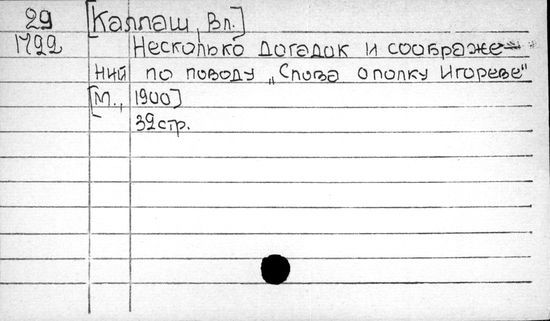 29 [Каллаш, Вл.]
1792 Несколько догадок и соображе-
ний по поводу „Слова о полку Игореве"
[М., 1900]
32стр.